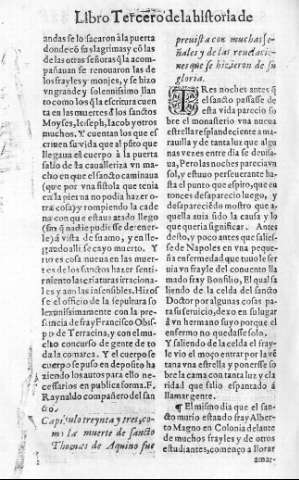 Libro Tercero de la historia de
andas se lo sacaron a la puerta
donde cõ sus lagrimas y cõ las
de las otras señoras q̃ la acom-
pañauan se renouaron las de
los frayles y monjes, y se hizo
vn grande y solennissimo llan
to como los q̃ la escritura cuen
ta en las muertes d̃ los sanctos
Moyses, Ioseph, Iacob y otros
muchos. Y cuentan los que es
criuen su vida que al pũto que
llegaua el cuerpo à la puerta
salio de la caualleriza vn ma
cho en que el sancto caminaua
(que por vna fistola que tenia
en la pierna no podia hazer o-
tra cosa) y rompiendo la cade
na con que estaua atado llego
(sin q̃ nadie pudiesse detener-
le) á vista de su amo, y en lle-
gando alli se cayo muerto. Y
no es cosa nueua en las muer-
tes de los sanctos hazer senti-
miento las criaturas irraciona-
les y aun las insensibles. Hizo
se el officio de la sepultura so
lennissimamente con la pre-
sencia de fray Francisco Obis-
po de Terracina, y con el mu
cho concurso de gente de to
da la comarca. Y el cuerpo se
puso en deposito ha
ziendo los autos para ello ne-
cessarios en publica forma. F.
Raynaldo compañero del san
cto.
Capitulo treynta y tres, co-
mo la muerte de sancto
Thomas de Aquino fue
preuista con muchas se-
ñales y de las reuelacio-
nes que se hizieron de su
gloria.
TRes noches antes q̃
el sancto passasse de
esta vida parecio so
bre el monasterio vna nueua
estrella resplandeciente a ma-
rauilla y de tanta luz que algu
nas vezes entre dia se deuisa-
ua, Pero las noches parecia vn
sol, y estuuo perseuerante hasta
el punto que espiro, que en
tonces desaparecio luego, y
desaparecida mostro que a
quella auia sido la causa y lo
que queria significar. Antes
desto, y poco antes que saliesse
de Napoles en vna peque-
ña enfermedad que tuuo le ser
uia vn frayle del conuento lla
mado fray Bonfilio, El qual sa
liendo de la celda del sancto
Doctor por algunas cosas pa-
ra su seruicio, dexo en su lugar
á vn hermano suyo porque el
enfermo no quedasse solo,
Y saliendo de la celda el fray-
le vio el moço entrar por la vẽ
tana vna estrella y ponerse so
bre la cama con tanta luz y cla
ridad que salio espantado á
llamar gente.
¶ El mismo dia que el san-
cto murio estando fray Alber
to Magno en Colonia delante
de muchos frayles y de otros
estudiantes, començo a llorar
amar-